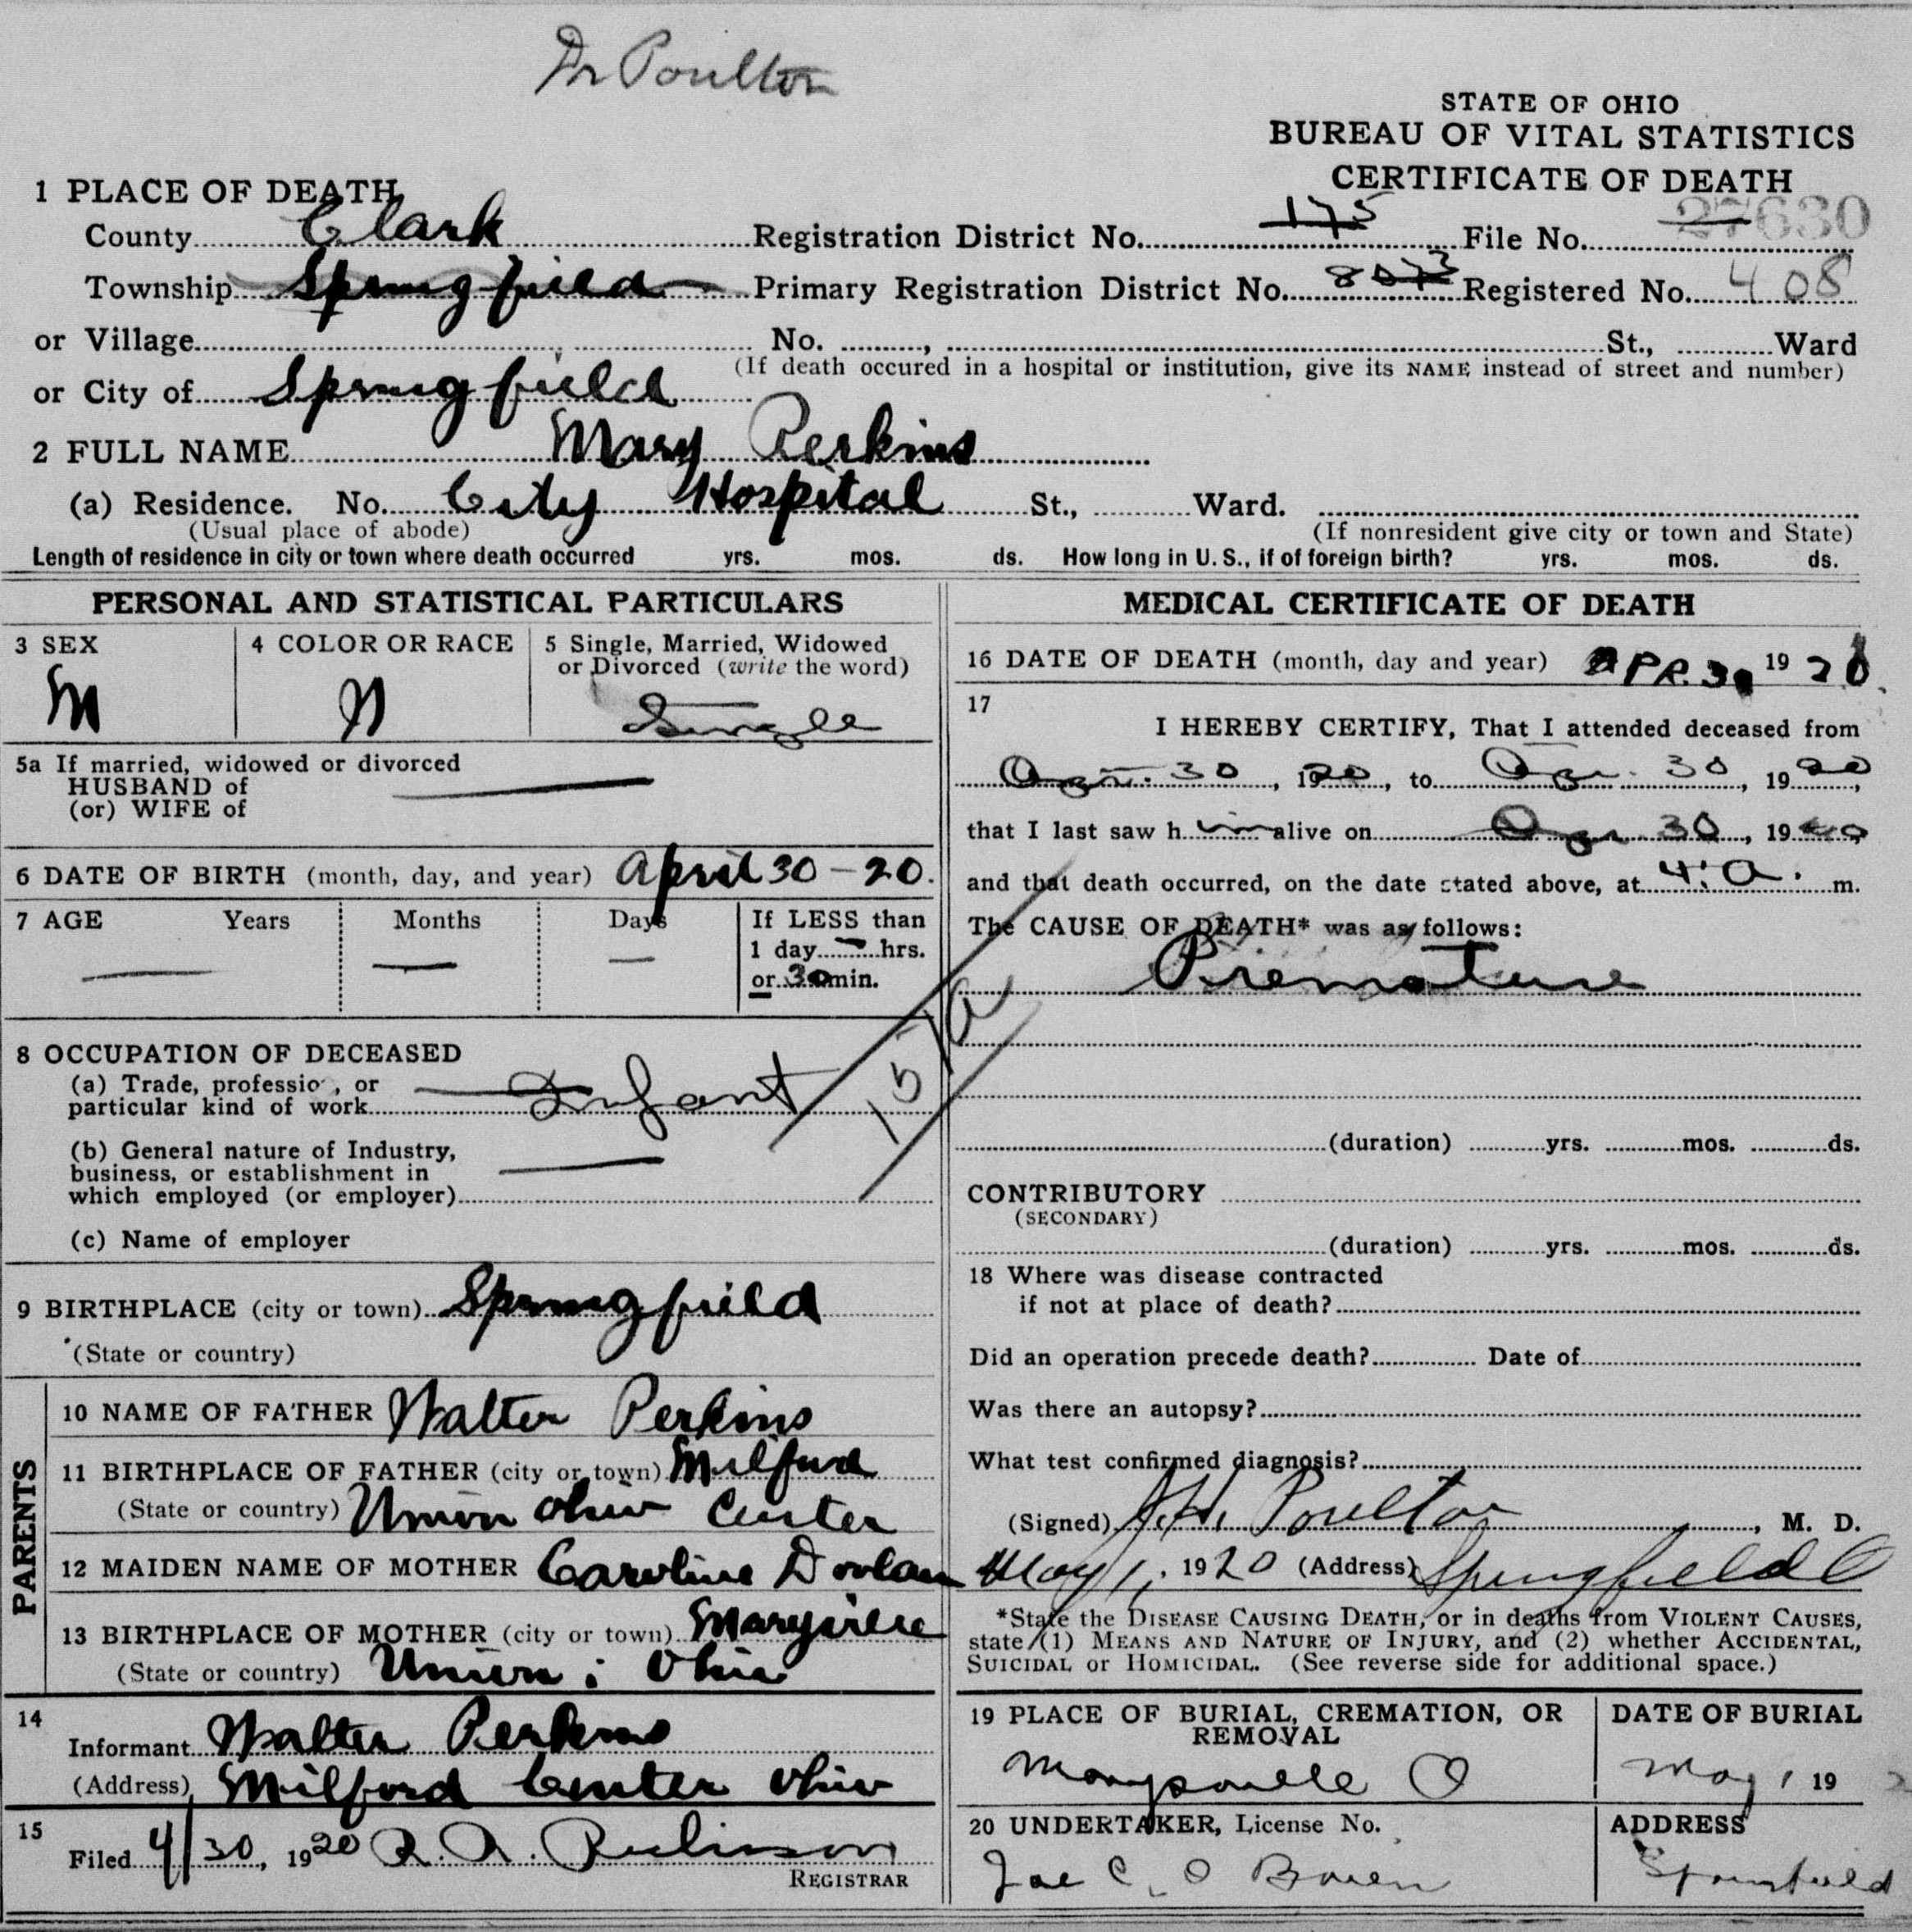 Dr Poulton
STATE OF OHIO
BUREAU OF VITAL STATISTICS
CERTIFICATE OF DEATH
1 PLACE OF DEATH
County Clark Registration District No. 175 File No. 27630
Township Springfield Primary Registration District No. 8073 Registered No. 408
or Village No. , St., Ward
(If death occured in a hospital or institution, give its NAME instead of street and number)
or City of Springfield
2 FULL NAME Mary Perkins
(a) Residence. No. City Hospital St., Ward.
(Usual place of abode) (If nonresident give city or town and State)
Length of residence in city or town where death occurred yrs. mos. ds. How long in U. S., if of foreign birth? yrs. mos. ds.
PERSONAL AND STATISTICAL PARTICULARS
3 SEX 4 COLOR OR RACE 5 Single, Married, Widowed
or Divorced (write the word)
M N Single
5a If married, widowed or divorced
HUSBAND of
(or) WIFE of
6 DATE OF BIRTH (month, day, and year) April 30 - 20.
7 AGE Years Months Days If LESS than
1 day — hrs.
or 30 min.
8 OCCUPATION OF DECEASED
(a) Trade, profession, or
particular kind of work Infant
(b) General nature of Industry,
business, or establishment in
which employed (or employer)
(c) Name of employer
9 BIRTHPLACE (city or town) Springfield
(State or country)
PARENTS
10 NAME OF FATHER Walter Perkins
11 BIRTHPLACE OF FATHER (city or town) Milford
(State or country) Union Ohio Center
12 MAIDEN NAME OF MOTHER Caroline
13 BIRTHPLACE OF MOTHER (city or town) Marysville
(State or country) Union ; Ohio
14
Informant Walter Perkins
(Address) Milford Center Ohio
15
Filed 4/30, 1920 R. R. Richison
REGISTRAR
MEDICAL CERTIFICATE OF DEATH
16 DATE OF DEATH (month, day and year) APR. 30 1920.
17
I HEREBY CERTIFY, That I attended deceased from
Apr. 30, 1920, to Apr. 30, 1920,
that I last saw him alive on Apr. 30, 1920,
and that death occurred, on the date stated above, at 4: a. m.
The CAUSE OF DEATH* was as follows:
Premature
151a
(duration) yrs. mos. ds.
CONTRIBUTORY
(SECONDARY)
(duration) yrs. mos. ds.
18 Where was disease contracted
if not at place of death?
Did an operation precede death? Date of
Was there an autopsy?
What test confirmed diagnosis?
(Signed) J. H. Poulton, M. D.
May 1, 1920 (Address) Springfield O
*State the DISEASE CAUSING DEATH, or in deaths from VIOLENT CAUSES,
state (1) MEANS AND NATURE OF INJURY, and (2) whether ACCIDENTAL,
SUICIDAL or HOMICIDAL. (See reverse side for additional space.)
19 PLACE OF BURIAL, CREMATION, OR
REMOVAL
Marysville O
DATE OF BURIAL
May 1 19 2
20 UNDERTAKER, License No.
Joe C. O Brien
ADDRESS
Springfield